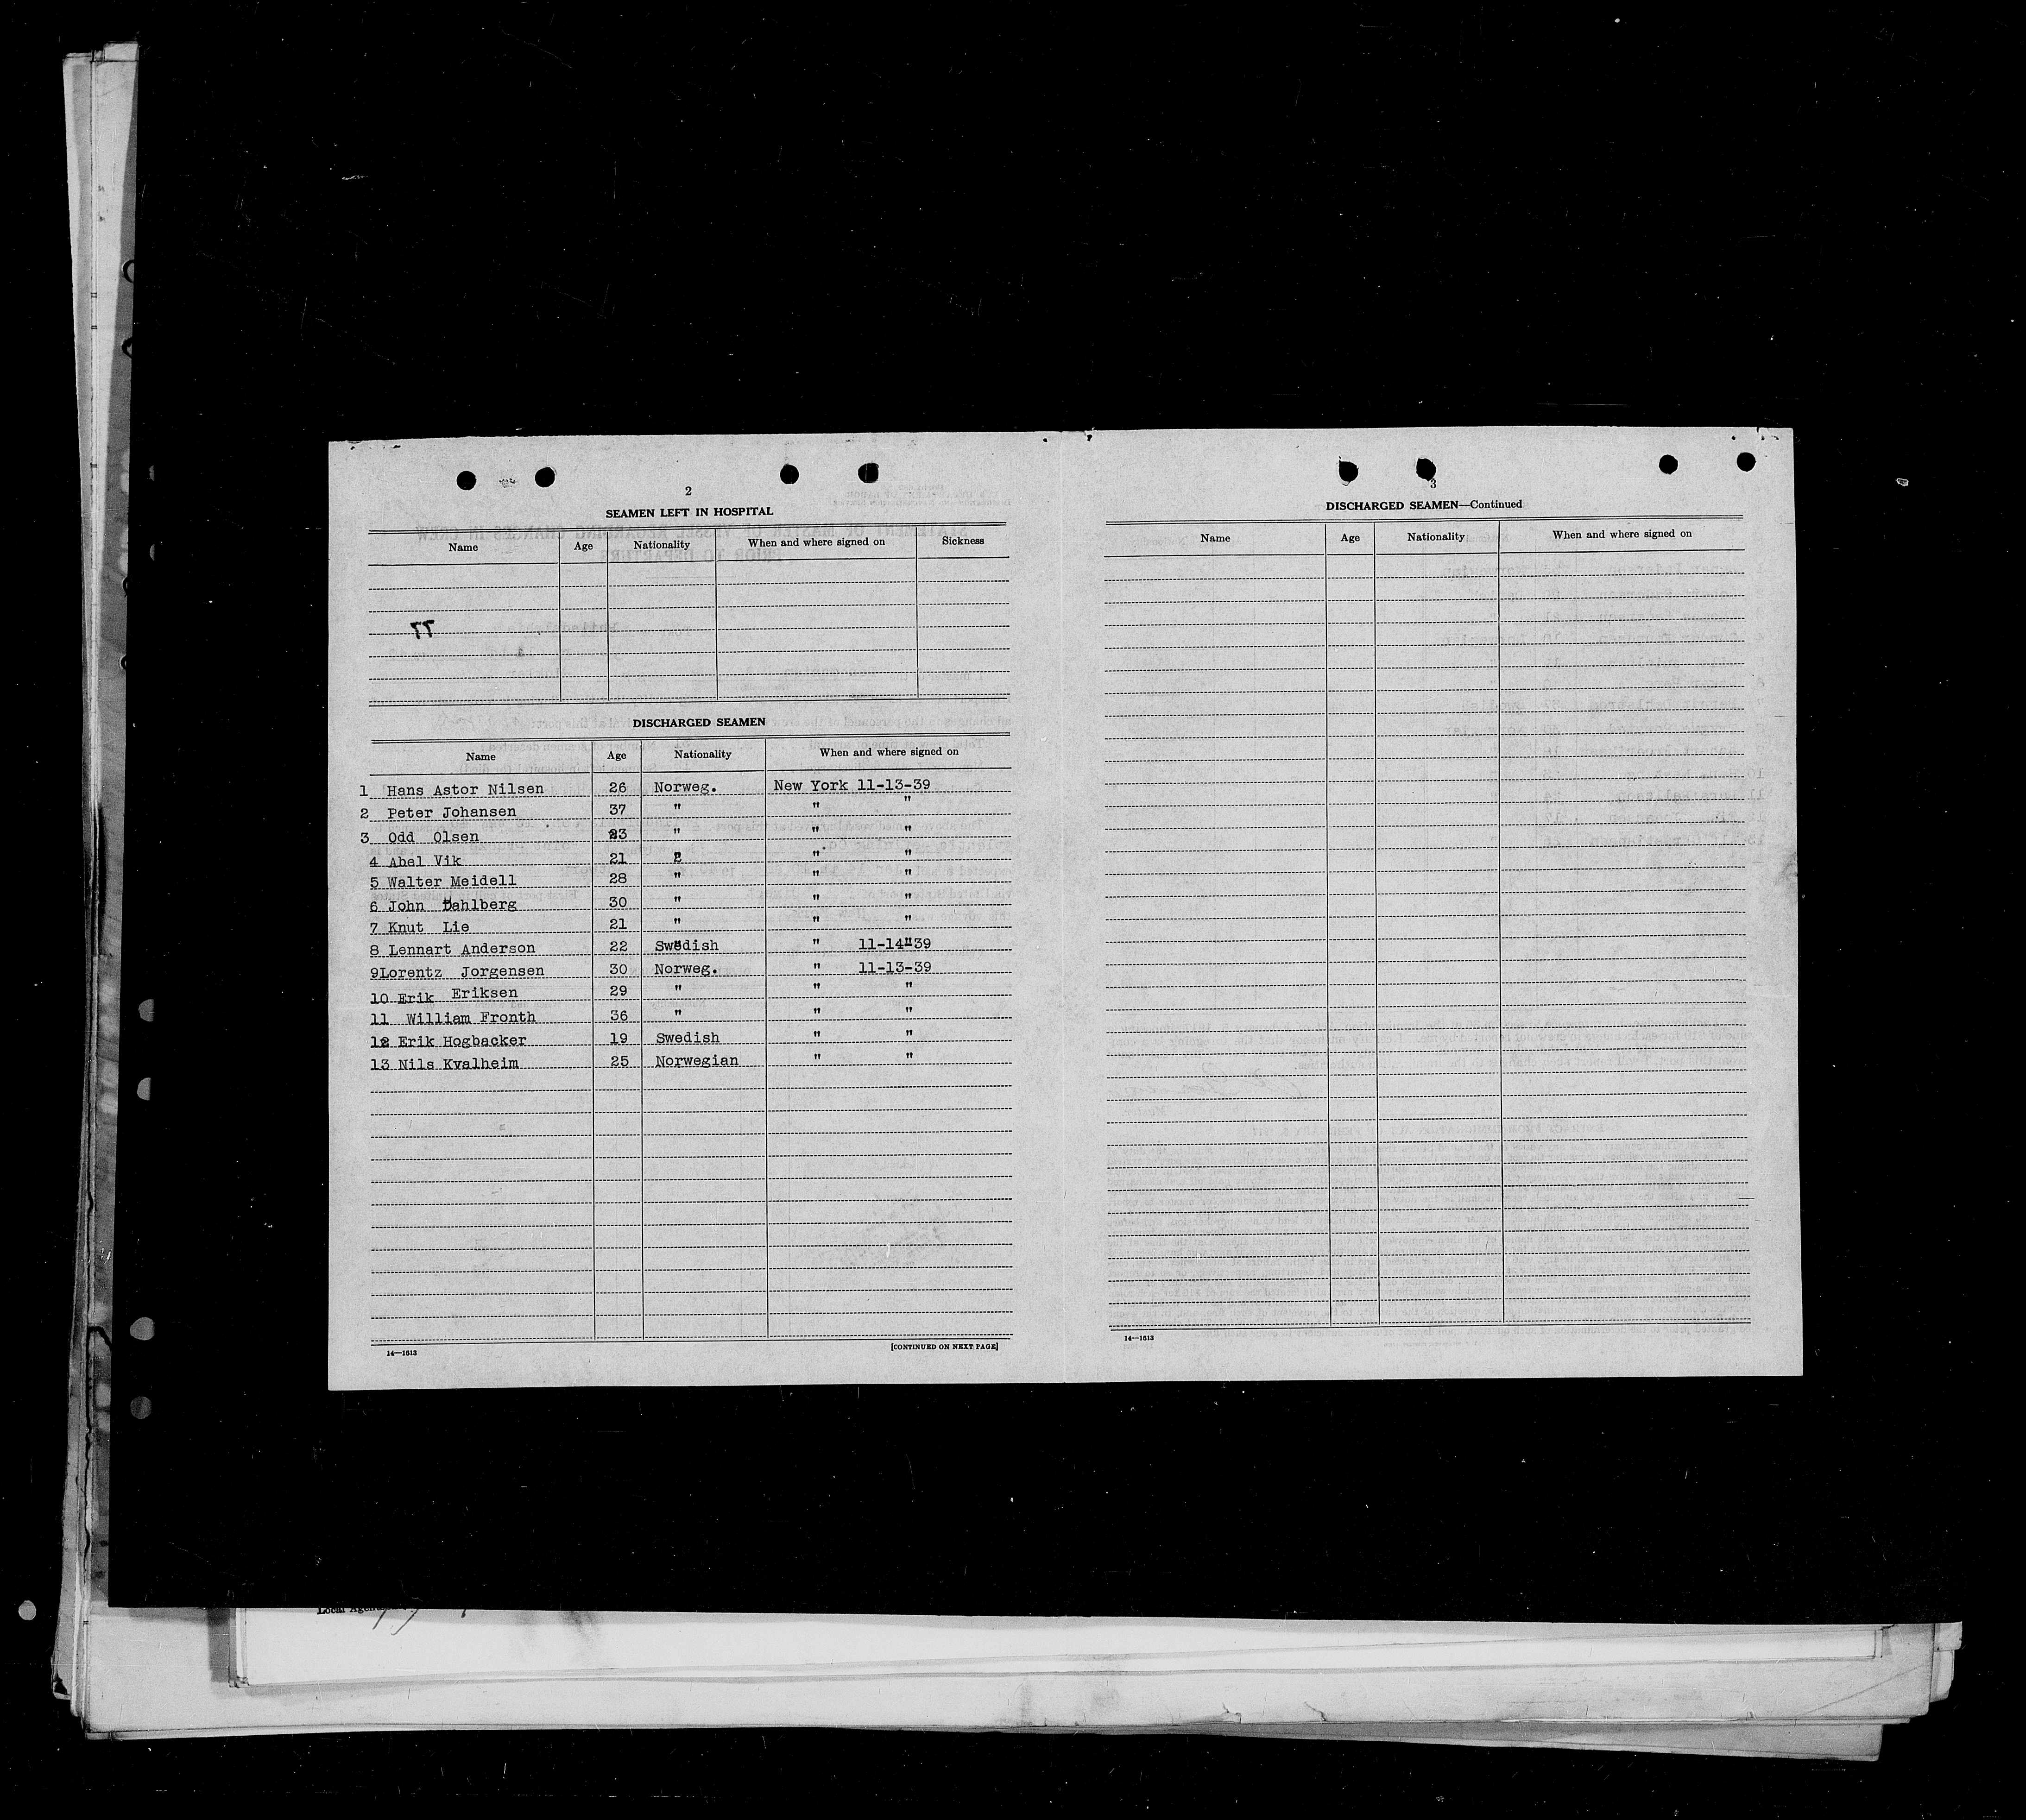 2
SEAMEN LEFT IN HOSPITAL
Name Age Nationality When and where signed on Sickness
77
DISCHARGED SEAMEN
Name Age Nationality When and where signed on
1 Hans Astor Nilsen 26 Norweg. New York 11-13-39
2 Peter Johansen 37 " " "
3 Odd Olsen 23 " " "
4 Abel Vik 21 " " "
5 Walter Meidell 28 " " "
6 John Dahlberg 30 " " "
7 Knut Lie 21 " " "
8 Lennart Anderson 22 Swedish " 11-14-39
9 Lorentz Jorgensen 30 Norweg. " 11-13-39
10 Erik Eriksen 29 " " "
11 William Fronth 36 " " "
12 Erik Hogbacker 19 Swedish " "
13 Nils Kvalheim 25 Norwegian " "
14—1613 [CONTINUED ON NEXT PAGE]
3
DISCHARGED SEAMEN—Continued
Name Age Nationality When and where signed on
14—1613
Local Agent